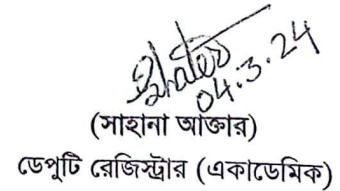 04.3.24
(সাহানা আক্তার)
ডেপুটি রেজিস্ট্রার (একাডেমিক)